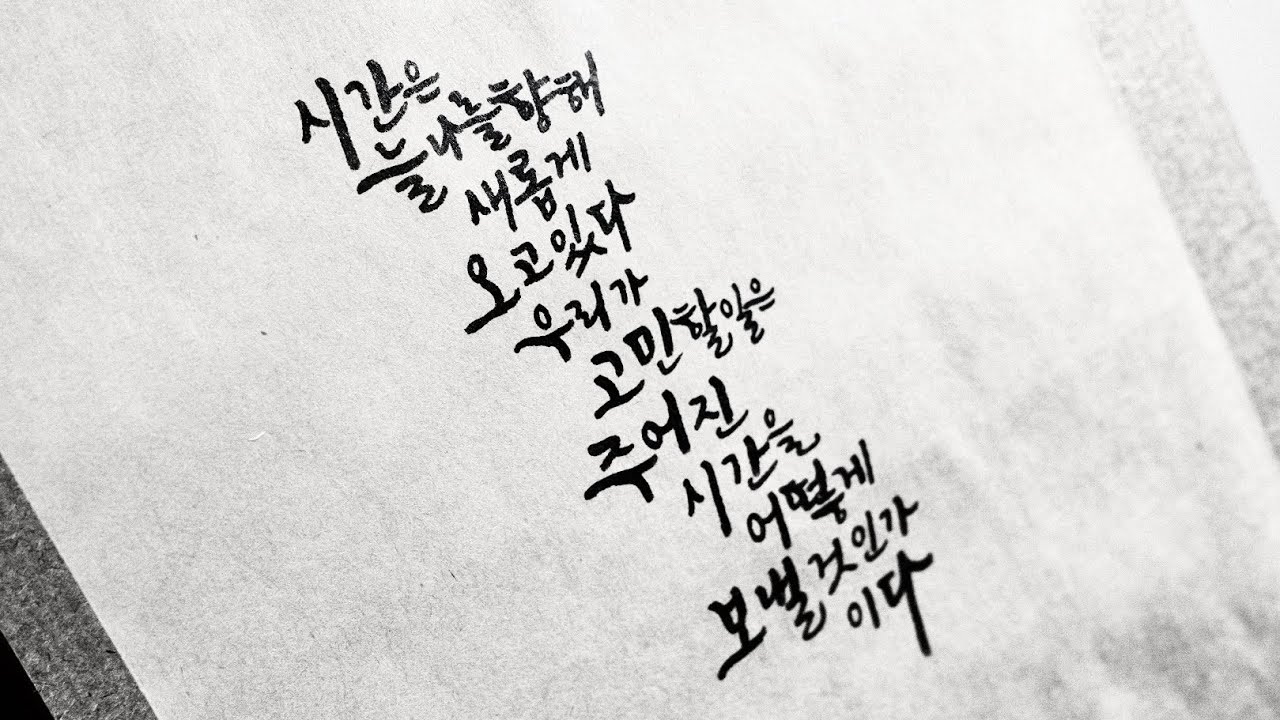 시간은
늘 나를 향해
새롭게
오고 있다
우리가
고민할 일은
주어진
시간을
어떻게
보낼 것인가
이다